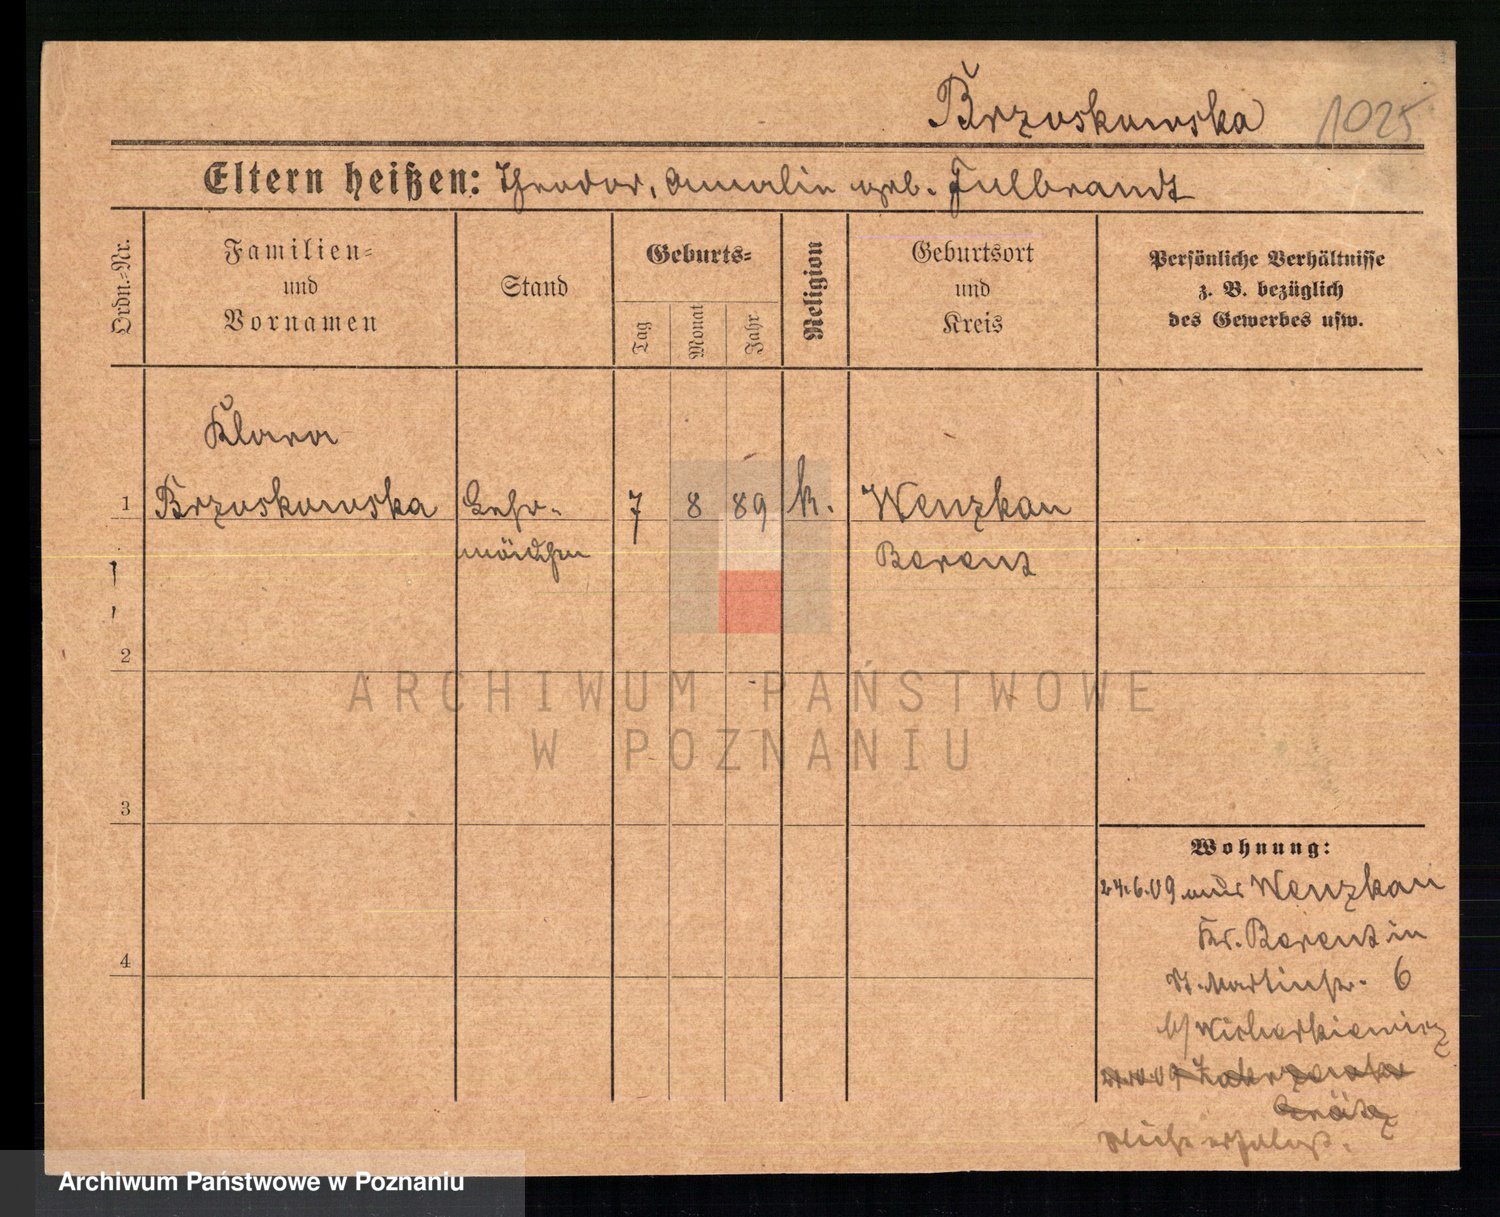 Brzoskowska 1025
Eltern heißen: Theodor, Amalie geb. Fulbrandt
Ordn.-Nr.
Familien-
und
Vornamen
Stand
Geburts-
Tag
Monat
Jahr
Religion
Geburtsort
und
Kreis
Persönliche Verhältnisse
z. B. bezüglich
des Gewerbes usw.
Klara
1 Brzoskowska 7 8 89 k. Wenzkau
mädchen Berent
2
ARCHIWUM PAŃSTWOWE
W POZNANIU
3
Wohnung:
24.6.09 aus Wenzkau
Kr. Berent in
4
St. Martinstr. 6
b/ Wicherkiewicz
Grätz
nicht erfolgt.
Archiwum Państwowe w Poznaniu